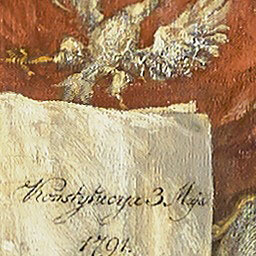 Konstytucya 3 Maja
1791.